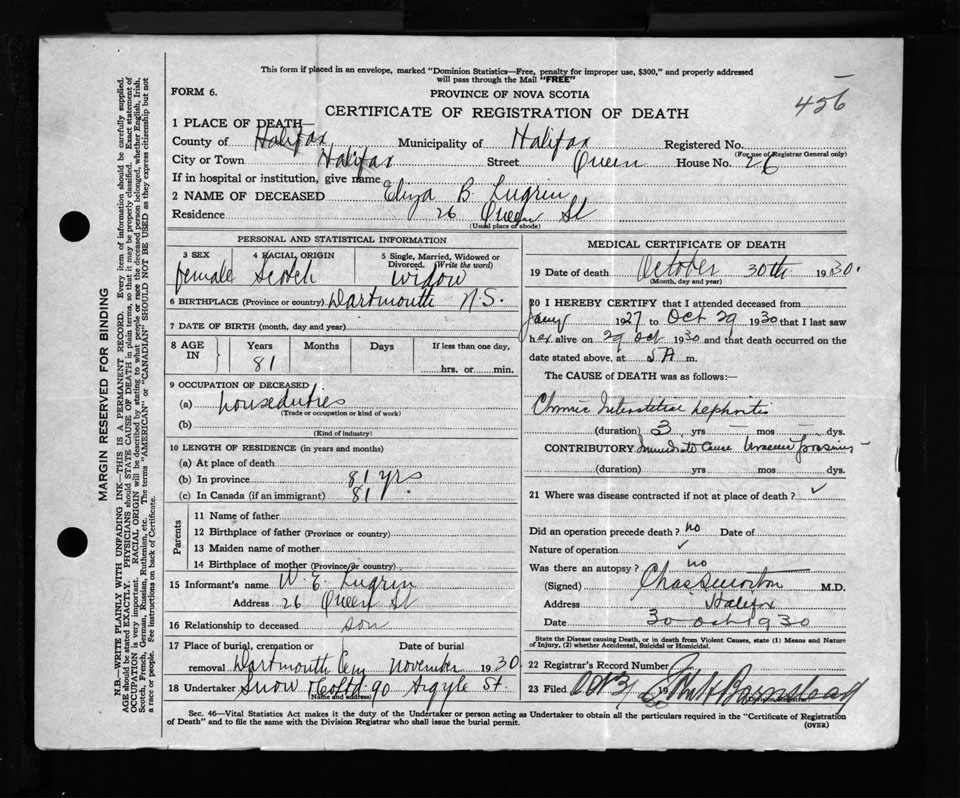 This form if placed in an envelope, marked "Dominion Statistics—Free, penalty for improper use, $300," and properly addressed
will pass through the Mail "FREE"
FORM 6.
PROVINCE OF NOVA SCOTIA
456
CERTIFICATE OF REGISTRATION OF DEATH
1 PLACE OF DEATH—
County of Halifax Municipality of Halifax Registered No.
(For use of Registrar General only)
City or Town Halifax Street Queen House No. 26
If in hospital or institution, give name
2 NAME OF DECEASED Eliza B. Lugrin
Residence 26 Queen St
(Usual place of abode)
PERSONAL AND STATISTICAL INFORMATION
3 SEX 4 RACIAL ORIGIN 5 Single, Married, Widowed or Divorced. (Write the word)
female Scotch Widow
6 BIRTHPLACE (Province or country) Dartmouth N.S.
7 DATE OF BIRTH (month, day and year)
8 AGE IN Years Months Days If less than one day,
81 hrs. or min.
9 OCCUPATION OF DECEASED
(a) house duties
(Trade or occupation or kind of work)
(b)
(Kind of industry)
10 LENGTH OF RESIDENCE (in years and months)
(a) At place of death
(b) In province 81 yrs
(c) In Canada (if an immigrant) 81
Parents
11 Name of father
12 Birthplace of father (Province or country)
13 Maiden name of mother
14 Birthplace of mother (Province or country)
15 Informant's name W. E. Lugrin
Address 26 Queen St
16 Relationship to deceased son
17 Place of burial, cremation or Date of burial
removal Dartmouth Cem November 1930
18 Undertaker Snow & Co Ltd 90 Argyle St.
(Name and address)
MEDICAL CERTIFICATE OF DEATH
19 Date of death October 30th 1930.
(Month, day and year)
20 I HEREBY CERTIFY that I attended deceased from
Jany 1927 to Oct 29 1930 that I last saw
her alive on 29 Oct 1930 and that death occurred on the
date stated above, at 5 A m.
The CAUSE of DEATH was as follows:—
Chronic Interstitial Nephritis
(duration) 3 yrs — mos — dys.
CONTRIBUTORY Immediate Cause
(duration) yrs. mos. dys.
21 Where was disease contracted if not at place of death? ✓
Did an operation precede death? no Date of
Nature of operation ✓
Was there an autopsy? no
(Signed) M.D.
Address Halifax
Date 30 Oct 1930
State the Disease causing Death, or in death from Violent Causes, state (1) Means and Nature
of Injury, (2) whether Accidental, Suicidal or Homicidal.
22 Registrar's Record Number
23 Filed Oct 31 19
Sec. 46—Vital Statistics Act makes it the duty of the Undertaker or person acting as Undertaker to obtain all the particulars required in the "Certificate of Registration
of Death" and to file the same with the Division Registrar who shall issue the burial permit.
(OVER)
MARGIN RESERVED FOR BINDING
N.B.—WRITE PLAINLY WITH UNFADING INK—THIS IS A PERMANENT RECORD. Every item of information should be carefully supplied.
AGE should be stated EXACTLY. PHYSICIANS should STATE CAUSE OF DEATH in plain terms, so that it may be properly classified. Exact statement of
OCCUPATION is very important. RACIAL ORIGIN will be described by stating to what people or race the deceased person belonged, whether English, Irish,
Scotch, French, German, Russian, Ruthenian, etc. The terms "AMERICAN" or "CANADIAN" SHOULD NOT BE USED as they express citizenship but not
a race or people. See instructions on back of Certificate.